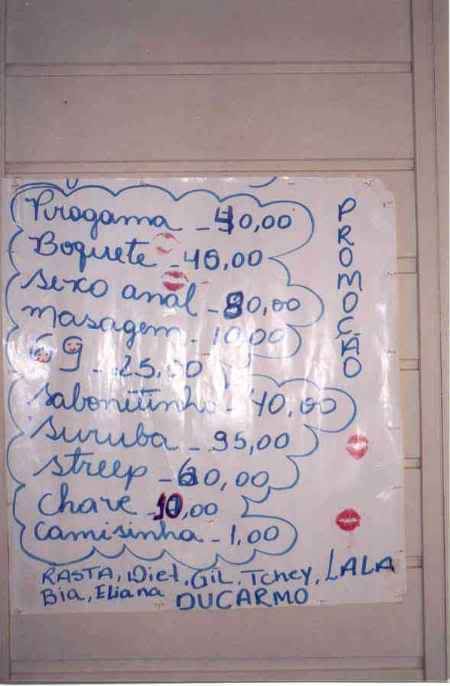 Pirogama - 40,00
Boquete - 45,00
sexo anal - 80,00
masagem - 10,00
69 - 25,00
sabonitinho - 40,00
suruba - 95,00
streep - 60,00
chave 10,00
camisinha - 1,00
PROMOÇÃO
RASTA, Diel, GiL, Tchey, LALA
Bia, Eliana DUCARMO